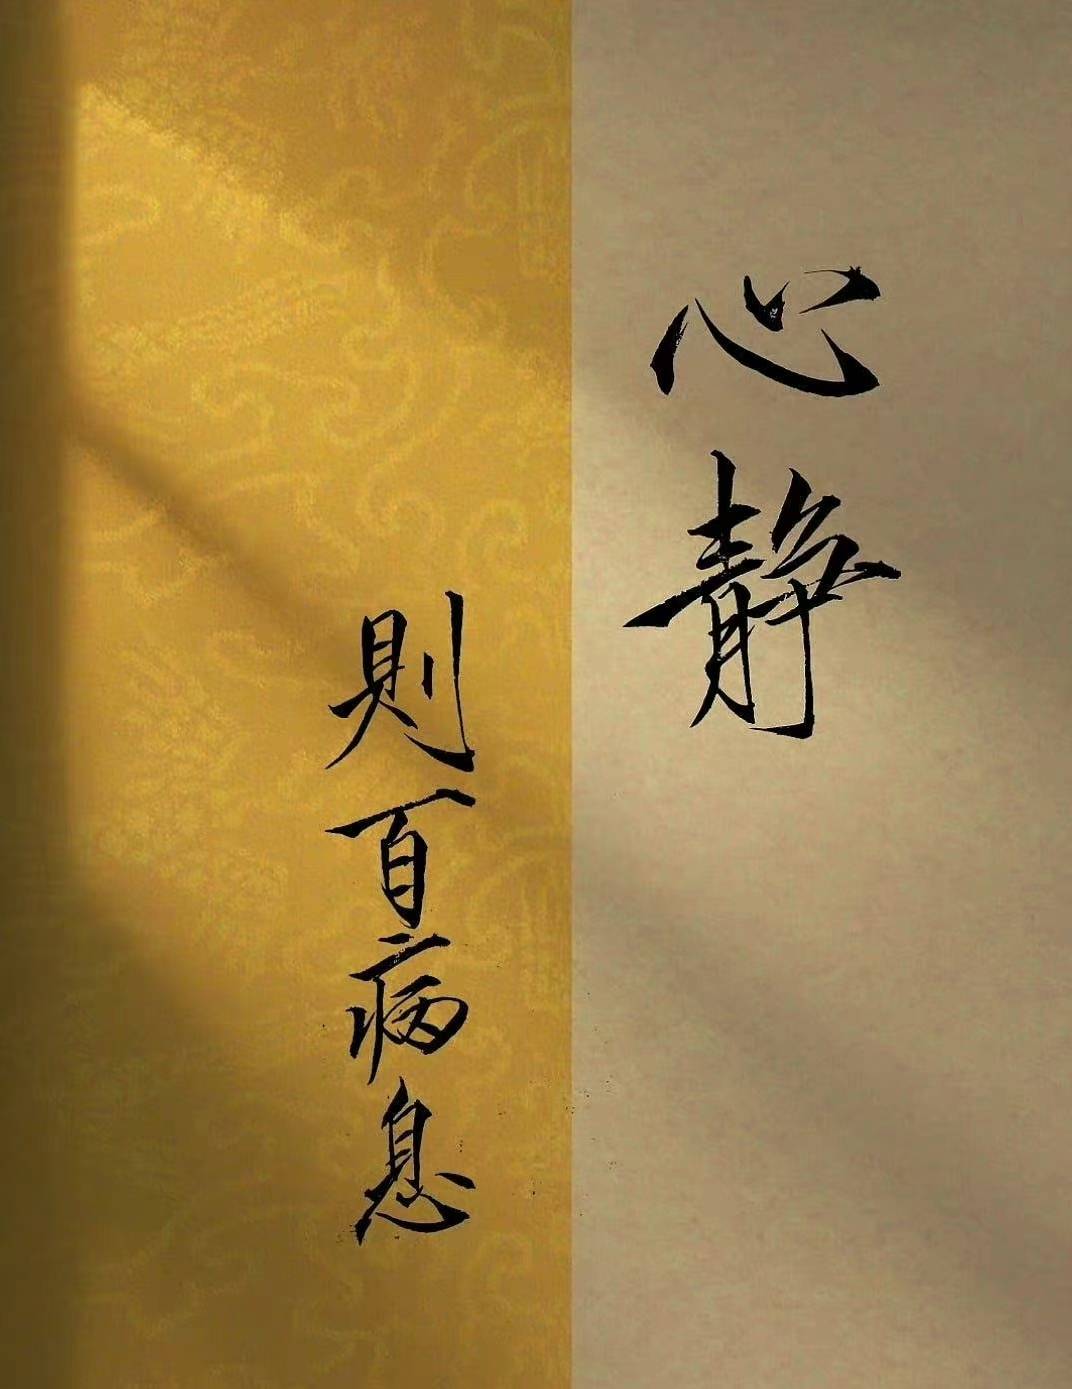 心静
則百病息